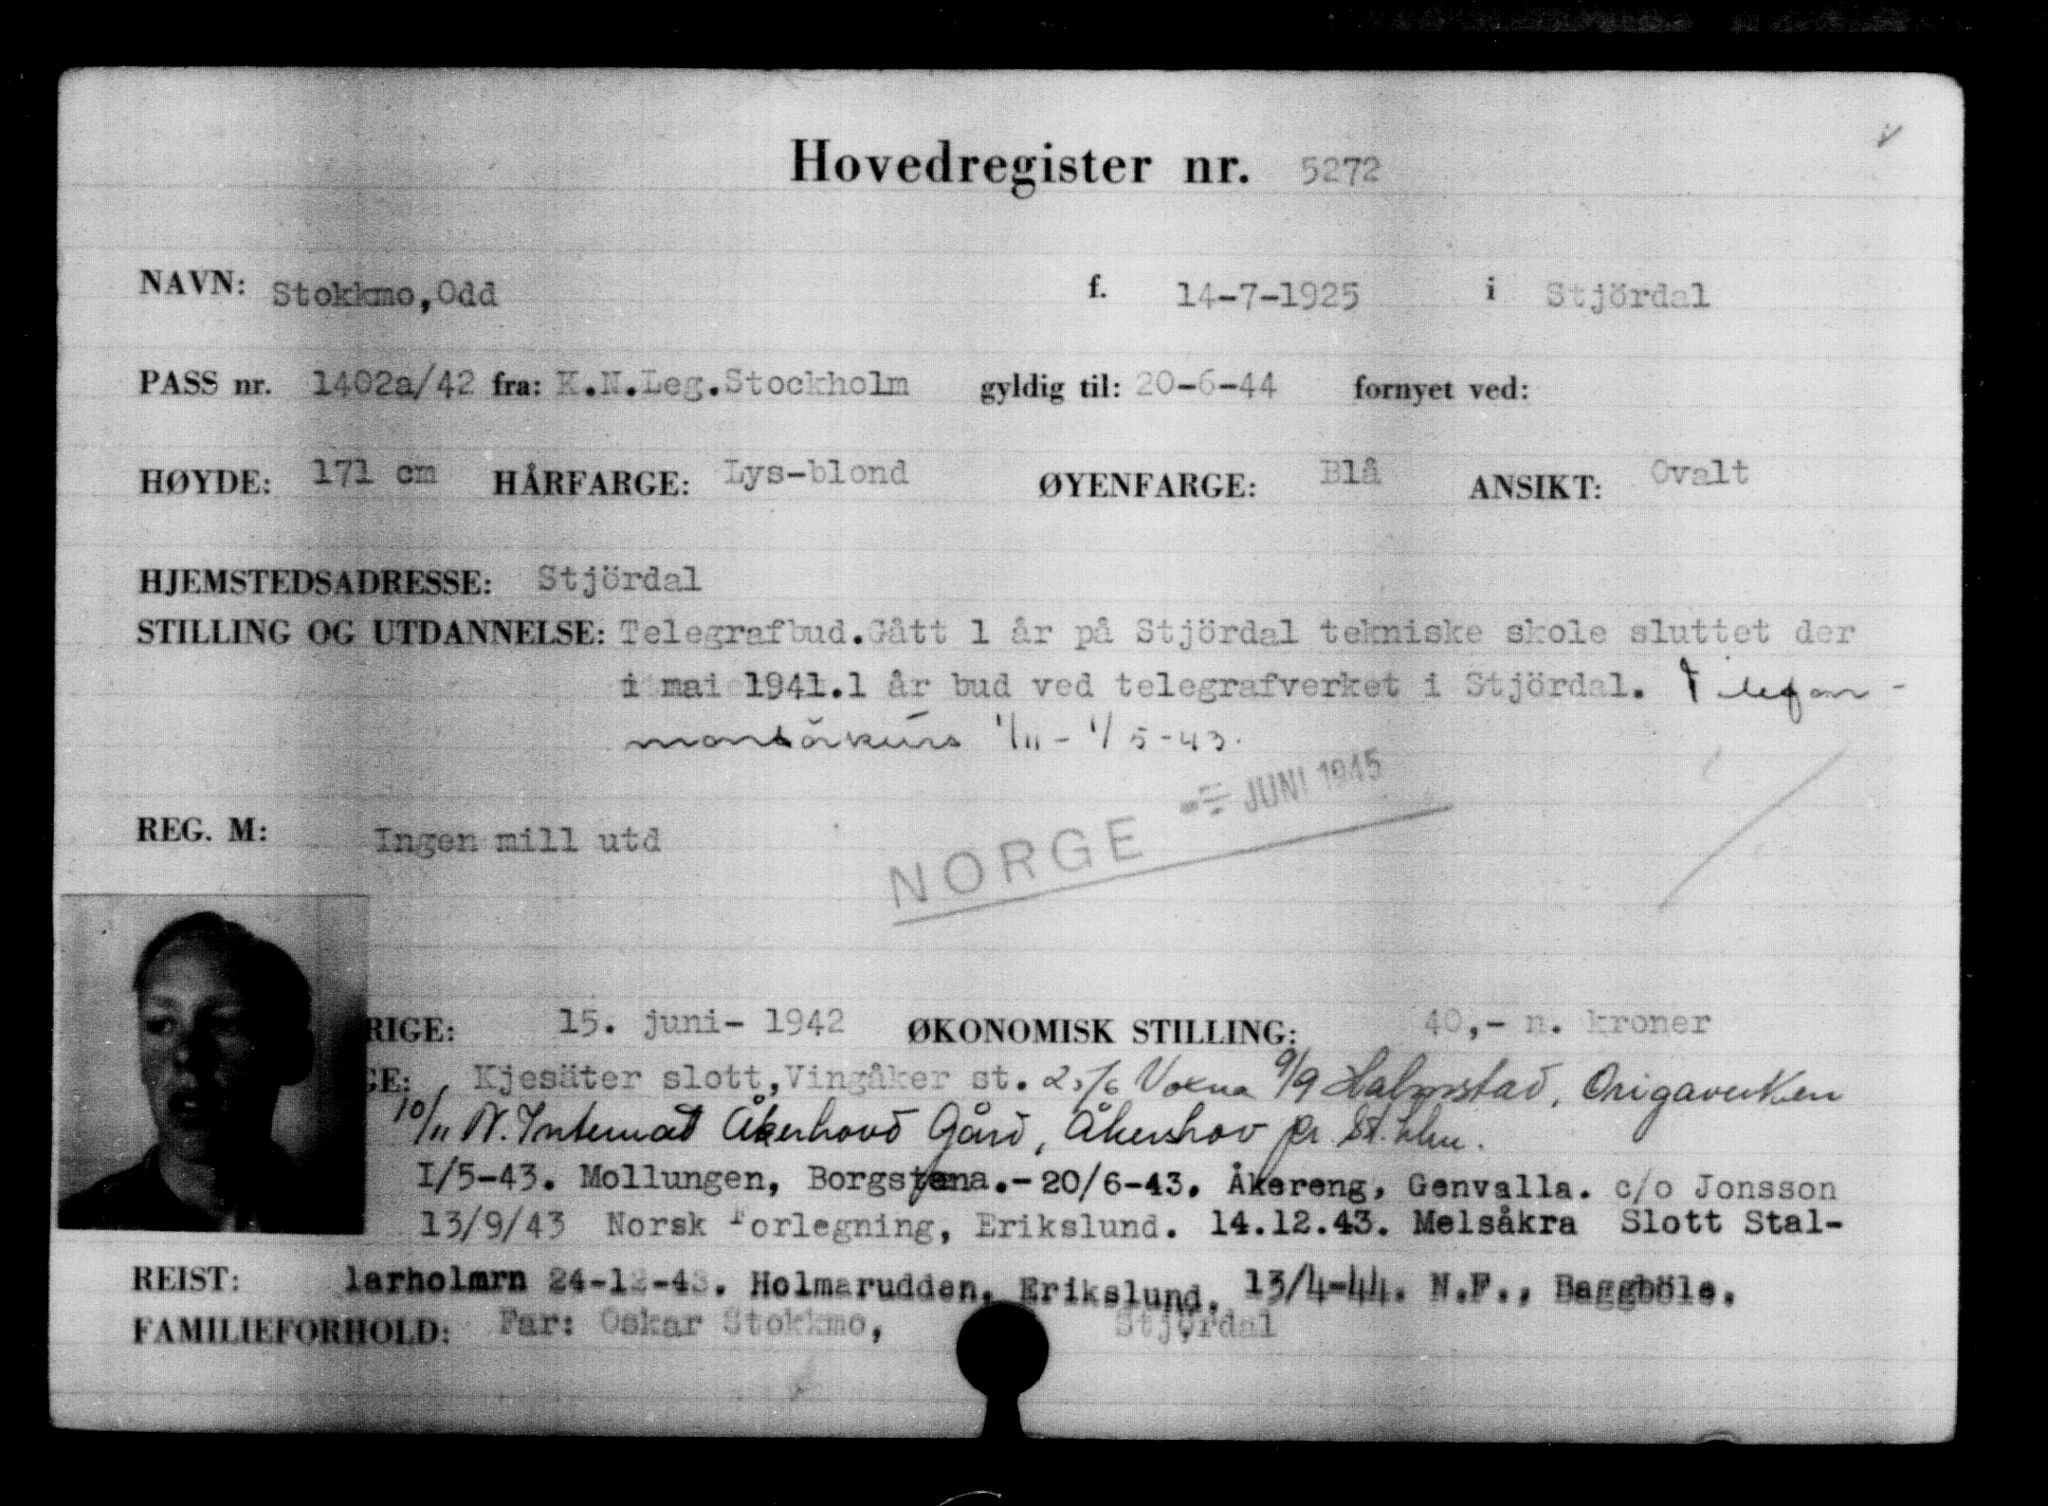 Hovedregister nr. 5272
NAVN: Stokkmo,Odd f. 14-7-1925 i Stjördal
PASS nr. 1402a/42 fra: K.N.Leg.Stockholm gyldig til: 20-6-44 fornyet ved:
HØYDE: 171 cm HÅRFARGE: Lys-blond ØYENFARGE: Blå ANSIKT: Ovalt
HJEMSTEDSADRESSE: Stjördal
STILLING OG UTDANNELSE: Telegrafbud.Gått 1 år på Stjördal tekniske skole sluttet der
i mai 1941.1 år bud ved telegrafverket i Stjördal. Telefon-
montörkurs 1/11 - 1/5-43.
JUNI 1945
NORGE
REG. M: Ingen mill utd
RIGE: 15. juni- 1942 ØKONOMISK STILLING: 40,- n. kroner
GE: Kjesäter slott,Vingåker st. 25/6 Voxna 9/9 Halmstad, Origaverken
10/11 N. Internat Åkerhovd Gård, Åkershov pr. St.hlm.
I/5-43. Mollungen, Borgstena.-20/6-43. Åkereng, Genvalla. c/o Jonsson
13/9/43 Norsk Forlegning, Erikslund. 14.12.43. Melsåkra Slott Stal-
REIST: larholmrn 24-12-43. Holmarudden, Erikslund. 13/4-44. N.F., Baggböle.
FAMILIEFORHOLD: Far: Oskar Stokkmo, Stjördal